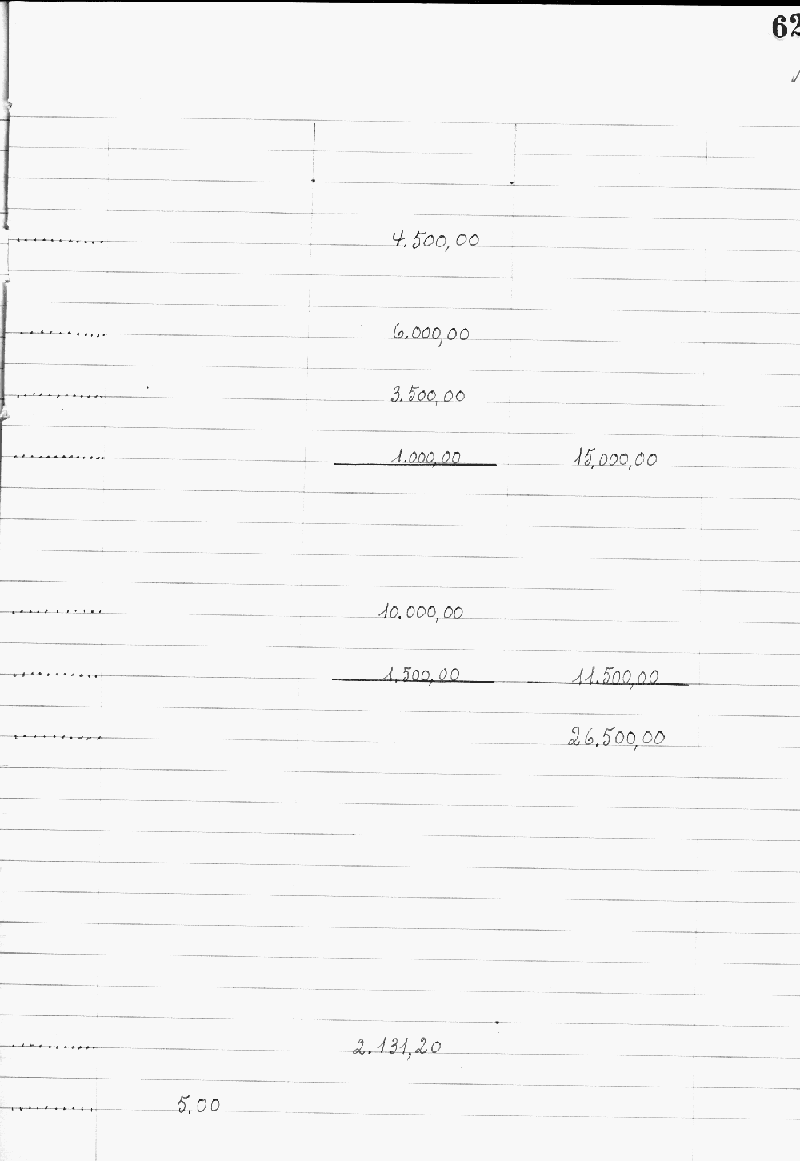 62
4.500,00
6.000,00
3.500,00
1.000,00 15.000,00
10.000,00
1.500,00 11.500,00
26.500,00
2.131,20
5,00